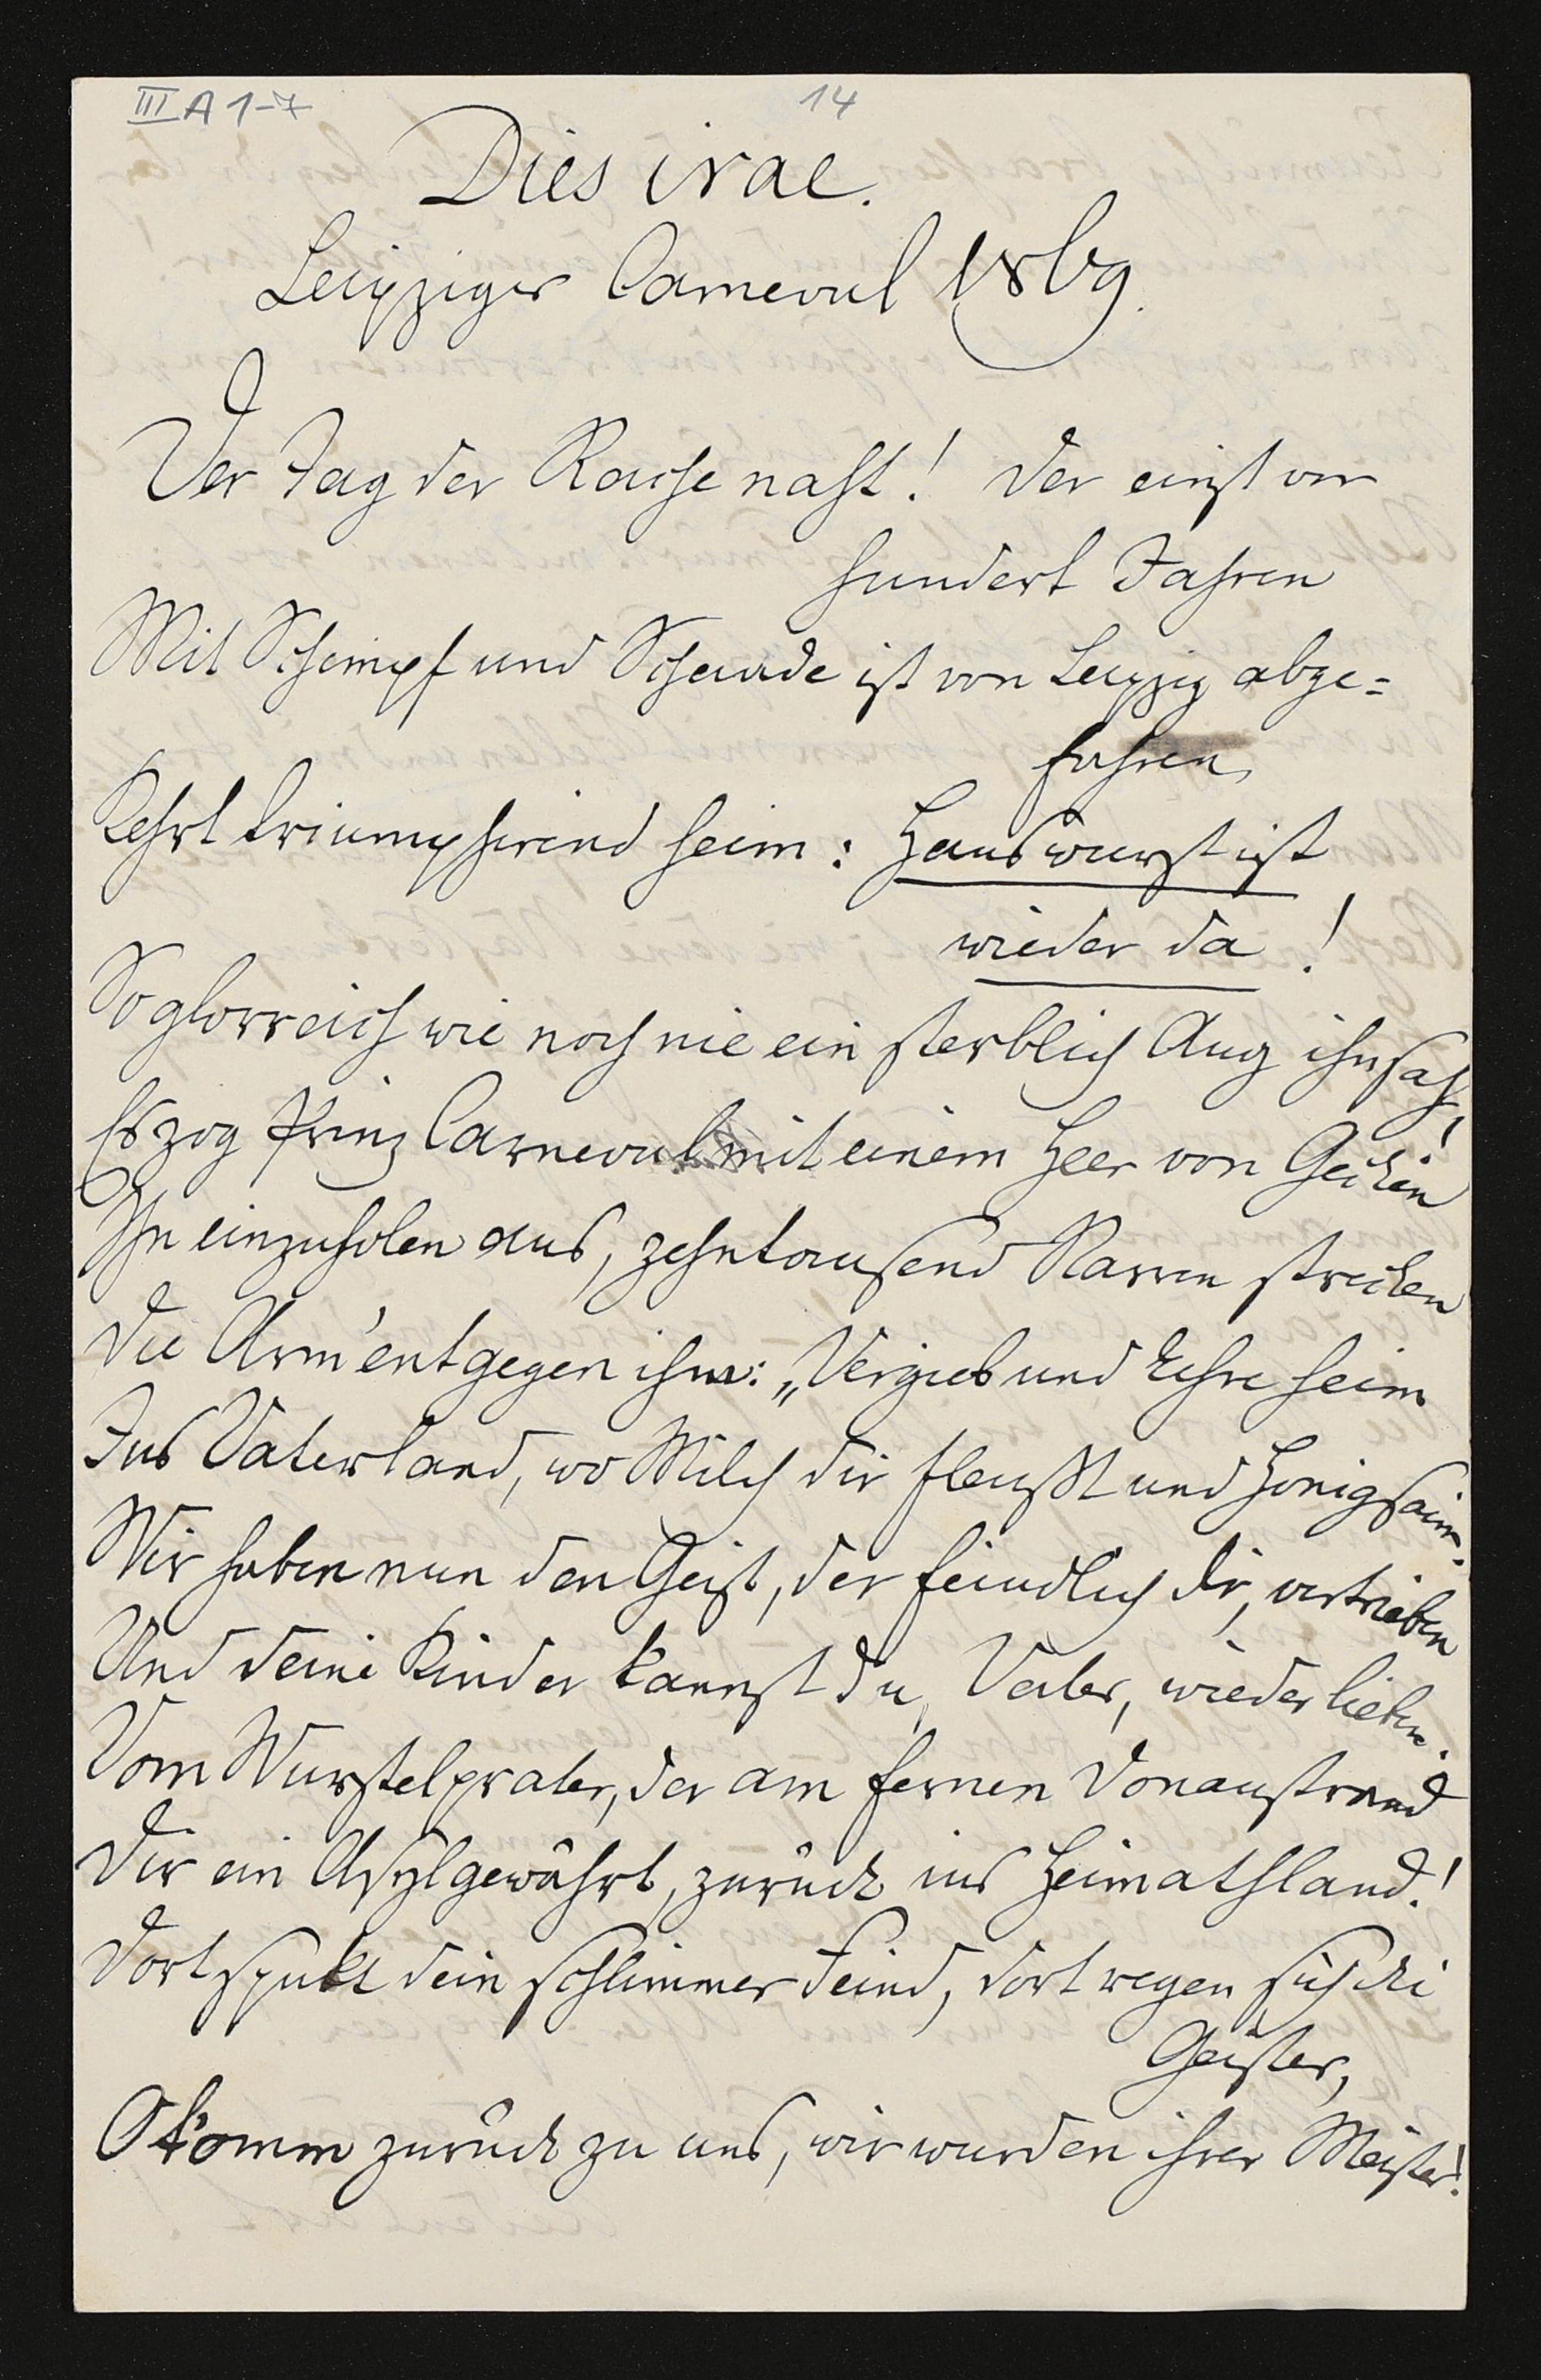 III A 1-7
14
Dies irae.
Leipziger Carneval 1869.
Der Tag der Rache naht! Der einst vor
hundert Jahren
Mit Schimpf und Schande ist von Leipzig abge=
fahren,
Kehrt triumphirend heim: Hanswurst ist
wieder da!
So glorreich wie noch nie ein sterblich Aug ihn sah,
Es zog Prinz Carneval mit einem Heer von Gecken
Ihn einzuholen aus, zehntausend Narren strecken
Die Arm' entgegen ihm: „Vergieb und kehre heim
Ins Vaterland, wo Milch dir fleußt und Honigseim.
Wir haben nun den Geist, der feindlich dir, vertrieben
Und deine Kinder kannst du, Vater, wieder lieben.
Vom Wurstelprater, der am fernen Donaustrand
Dir ein Asyl gewährt, zurück ins Heimathland!
Dort spukt dein schlimmer Feind, dort regen sich die
Geister,
O komm zurück zu uns, wir wurden ihrer Meister!